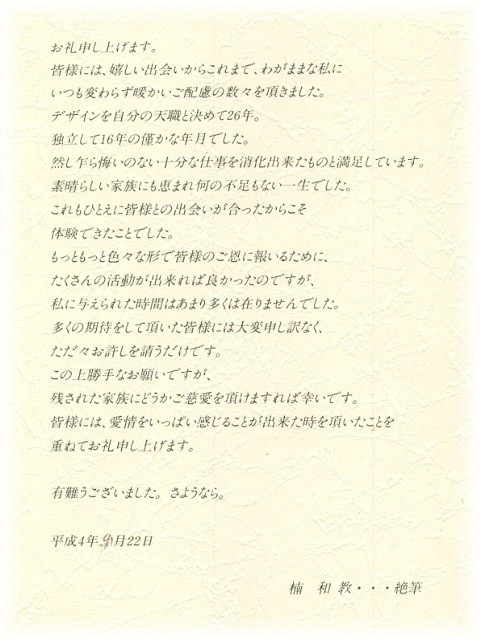 お礼申し上げます。
皆様には、嬉しい出会いからこれまで、わがままな私に
いつも変わらず暖かいご配慮の数々を頂きました。
デザインを自分の天職と決めて26年。
独立して16年の僅かな年月でした。
然し乍ら悔いのない十分な仕事を消化出来たものと満足しています。
素晴らしい家族にも恵まれ何の不足もない一生でした。
これもひとえに皆様との出会いが合ったからこそ
体験できたことでした。
もっともっと色々な形で皆様のご恩に報いるために、
たくさんの活動が出来れば良かったのですが、
私に与えられた時間はあまり多くは在りませんでした。
多くの期待をして頂いた皆様には大変申し訳なく、
ただ々お許しを請うだけです。
この上勝手なお願いですが、
残された家族にどうかご慈愛を頂けますれば幸いです。
皆様には、愛情をいっぱい感じることが出来た時を頂いたことを
重ねてお礼申し上げます。
有難うございました。さようなら。
平成4年 月22日
楠 和 教・・・絶筆